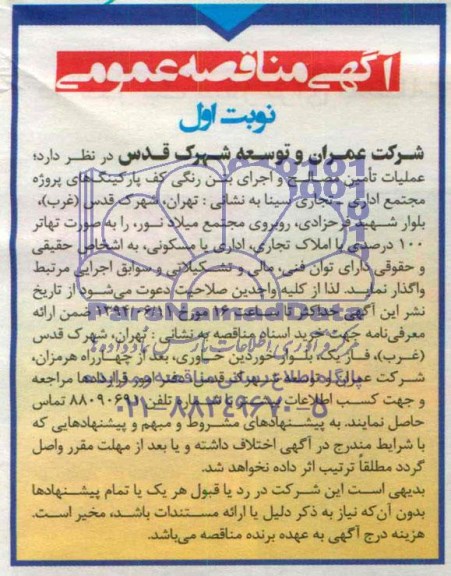 آگهی مناقصه عمومی
نوبت اول
شرکت عمران و توسعه شهرک قدس در نظر دارد؛
عملیات تأمین مصالح و اجرای بتن رنگی کف پارکینگ‌های پروژه
مجتمع اداری - تجاری سینا به نشانی: تهران، شهرک قدس (غرب)،
بلوار شهید فرحزادی، روبروی مجتمع میلاد نور، را به صورت تهاتر
۱۰۰ درصدی با املاک تجاری، اداری یا مسکونی، به اشخاص حقیقی
و حقوقی دارای توان فنی، مالی و تشکیلاتی و سوابق اجرایی مرتبط
واگذار نماید. لذا از کلیه واجدین صلاحیت دعوت می‌شود از تاریخ
نشر این آگهی حداکثر تا ساعت ۱۶ مورخ ۱۳۹۴/۰۶/۱۱ ضمن ارائه
معرفی‌نامه جهت خرید اسناد مناقصه به نشانی: تهران، شهرک قدس
(غرب)، فاز یک، بلوار خوردین خیاوری، بعد از چهارراه هرمزان،
شرکت عمران و توسعه شهرک قدس مراجعه
و جهت کسب اطلاعات بیشتر با شماره تلفن تماس
حاصل نمایند. به پیشنهادهای مشروط و مبهم و پیشنهادهایی که
با شرایط مندرج در آگهی اختلاف داشته و یا بعد از مهلت مقرر واصل
گردد مطلقاً ترتیب اثر داده نخواهد شد.
بدیهی است این شرکت در رد یا قبول هر یک یا تمام پیشنهادها
بدون آن‌که نیاز به ذکر دلیل یا ارائه مستندات باشد، مخیر است.
هزینه درج آگهی به عهده برنده مناقصه می‌باشد.
ParsNamadData
۰۲۱-۸۸۳۴۹۶۷۰-۵